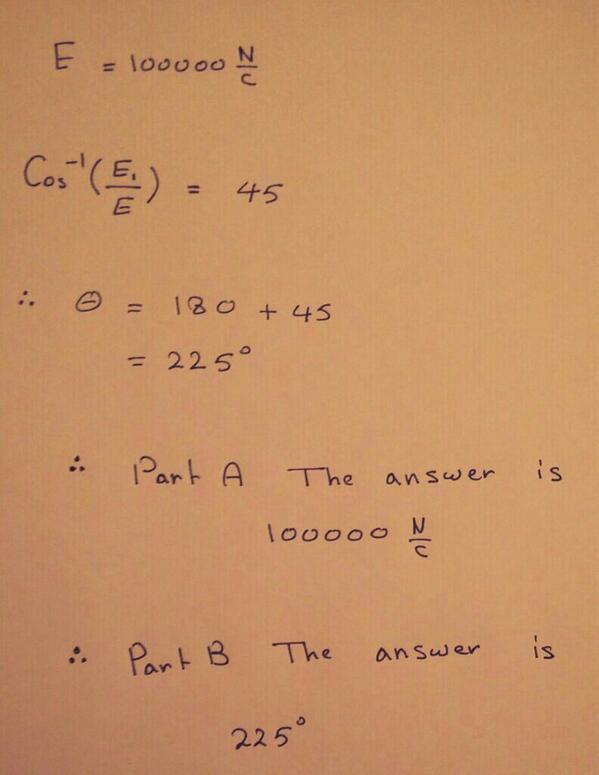 E = 100000 N/C
Cos⁻¹(E₁/E) = 45
∴ ⊖ = 180 + 45
= 225°
∴ Part A The answer is
100000 N/C
∴ Part B The answer is
225°